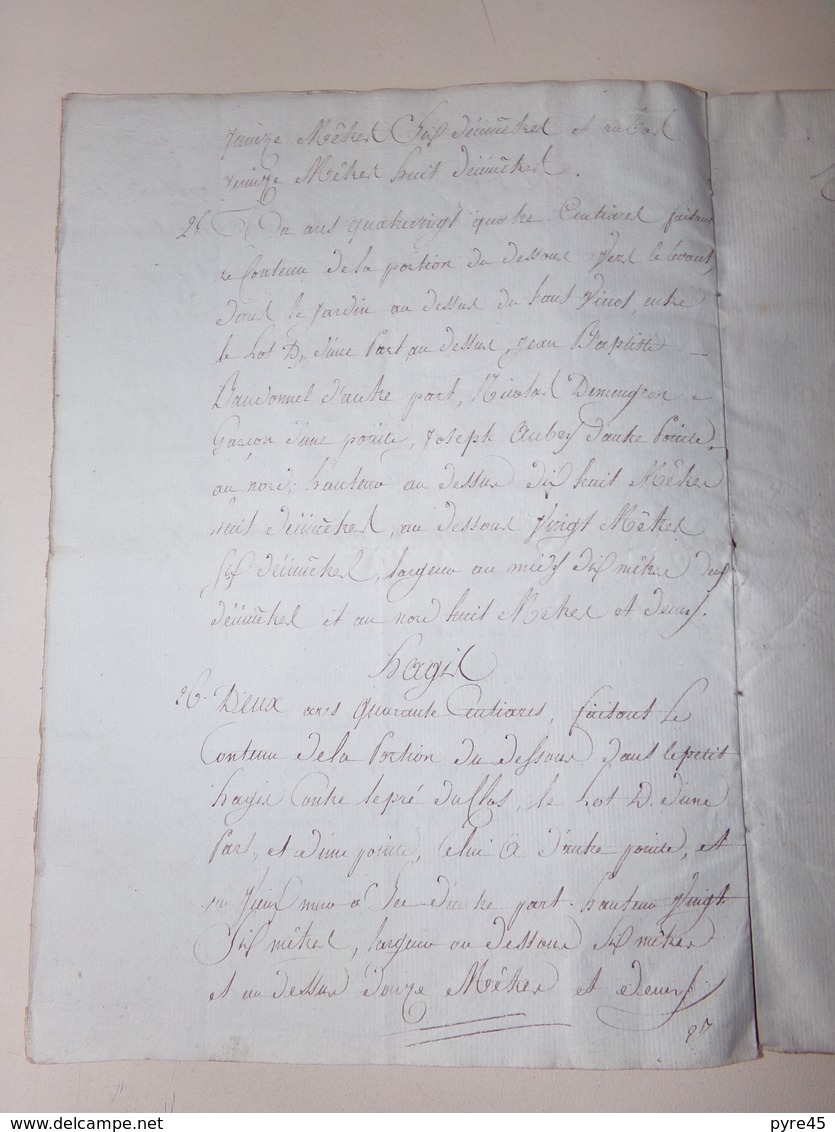 quinze Mêtres six décimêtres et au bas
quinze Mêtres huit décimêtres.
25. Un ars quatrevingt quatre Centiares faisant
le Contenu de la portion du dessous vers le levant,
dans le jardin au dessus du haut vinot, entre
le Lot D, d'une Part, au dessus, jean Baptiste
Baudonnel d'autre part, Nicolas Demengeon
Garçon d'une pointe, joseph Aubry d'autre Pointe,
au nord; hauteur au dessus dix huit Mêtres
huit décimêtres, au dessous vingt Mêtres
six décimêtres, largeur au midy dix mêtres deux
décimêtres et au nord huit Mêtres et demy.
hagis
26. Deux ars quarante Centiares, faisant le
Contenu de la Portion du dessous dans le petit
hagis Contre le pré du Clos, le Lot D. d'une
Part, et d'une pointe, celui A d'autre pointe, et
un vieux mur à sec d'autre part. hauteur vingt
six mêtres, largeur au dessous six mêtres
et au dessus douze Mêtres et demy
27
delcampe.net
pyre45